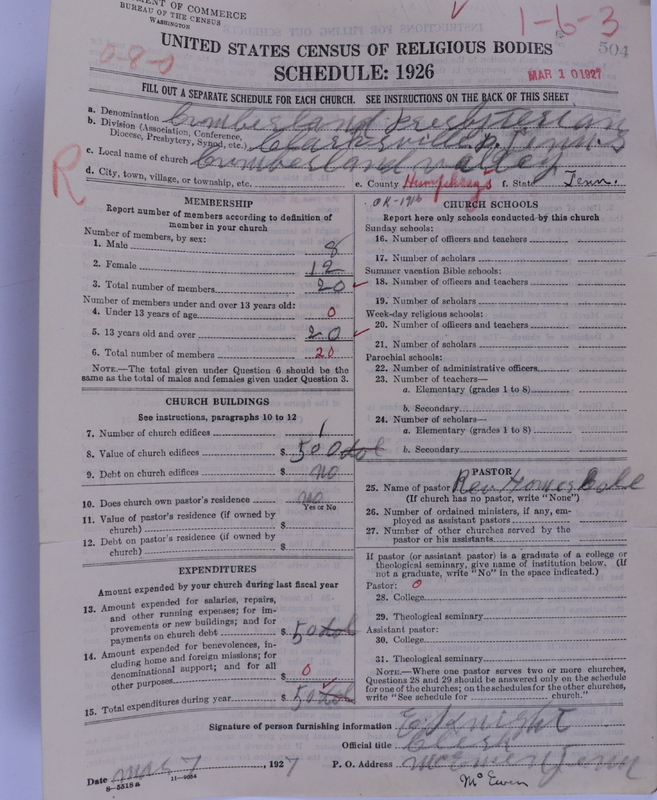 MENT OF COMMERCE
BUREAU OF THE CENSUS
WASHINGTON
1-6-3
504
0-8-0
UNITED STATES CENSUS OF RELIGIOUS BODIES
SCHEDULE: 1926
MAR 10 1927
FILL OUT A SEPARATE SCHEDULE FOR EACH CHURCH. SEE INSTRUCTIONS ON THE BACK OF THIS SHEET
a. Denomination Cumberland Presbyterian
b. Division (Association, Conference, Diocese, Presbytery, Synod, etc.) Clarksville P. Tenn. S
c. Local name of church Cumberland Valley
R
d. City, town, village, or township, etc. e. County Humphreys f. State Tenn.
OK-1916
MEMBERSHIP
Report number of members according to definition of member in your church
Number of members, by sex:
1. Male 8
2. Female 12
3. Total number of members 20
Number of members under and over 13 years old:
4. Under 13 years of age 0
5. 13 years old and over 20
6. Total number of members 20
NOTE.—The total given under Question 6 should be the same as the total of males and females given under Question 3.
CHURCH BUILDINGS
See instructions, paragraphs 10 to 12
7. Number of church edifices 1
8. Value of church edifices $ 500 dol
9. Debt on church edifices $ no
10. Does church own pastor's residence no
Yes or No
11. Value of pastor's residence (if owned by church) $
12. Debt on pastor's residence (if owned by church) $
EXPENDITURES
Amount expended by your church during last fiscal year
13. Amount expended for salaries, repairs, and other running expenses; for improvements or new buildings; and for payments on church debt $ 50 dol
14. Amount expended for benevolences, including home and foreign missions; for denominational support; and for all other purposes $ 0
15. Total expenditures during year $ 50 dol
CHURCH SCHOOLS
Report here only schools conducted by this church
Sunday schools:
16. Number of officers and teachers
17. Number of scholars
Summer vacation Bible schools:
18. Number of officers and teachers
19. Number of scholars
Week-day religious schools:
20. Number of officers and teachers
21. Number of scholars
Parochial schools:
22. Number of administrative officers
23. Number of teachers—
a. Elementary (grades 1 to 8)
b. Secondary
24. Number of scholars—
a. Elementary (grades 1 to 8)
b. Secondary
PASTOR
25. Name of pastor Rev
(If church has no pastor, write "None")
26. Number of ordained ministers, if any, employed as assistant pastors
27. Number of other churches served by the pastor or his assistants
If pastor (or assistant pastor) is a graduate of a college or theological seminary, give name of institution below. (If not a graduate, write "No" in the space indicated.)
Pastor: 0
28. College
29. Theological seminary
Assistant pastor:
30. College
31. Theological seminary
NOTE.—Where one pastor serves two or more churches, Questions 28 and 29 should be answered only on the schedule for one of the churches; on the schedules for the other churches, write "See schedule for church."
Signature of person furnishing information Knight
Official title Clerk
Date Mar 7, 1927 P. O. Address McEwen Tenn
8-5518a 11-9054
McEwen